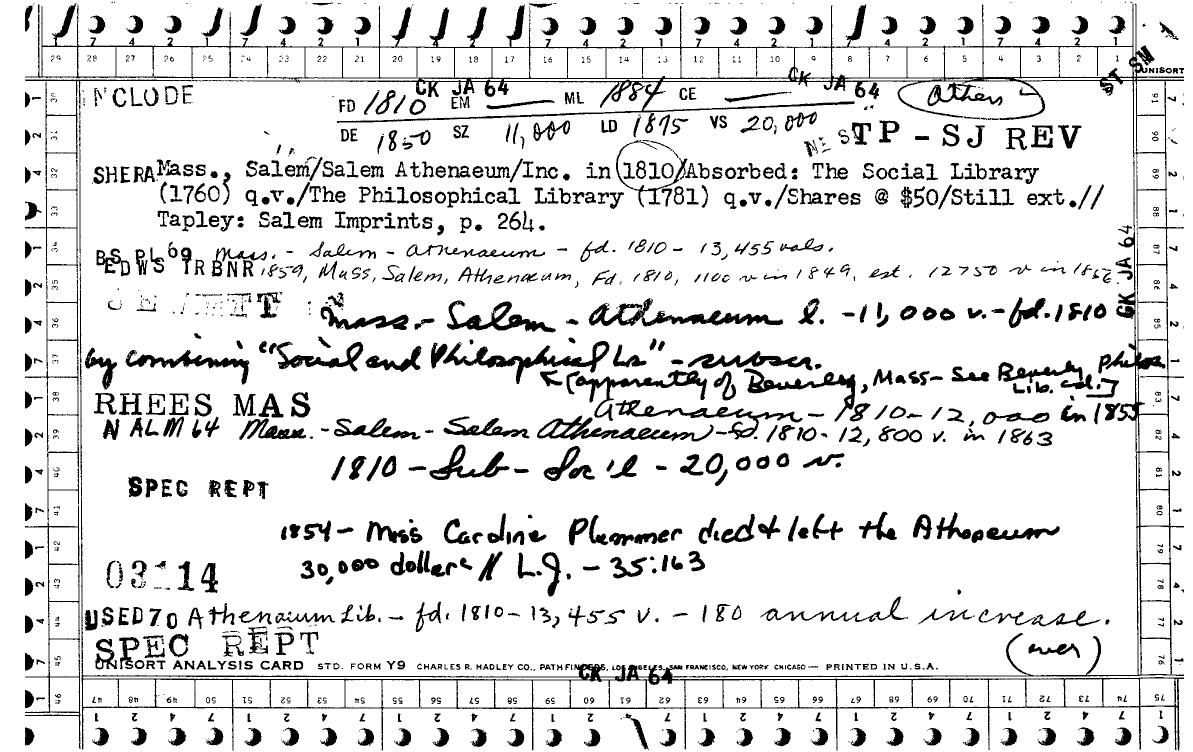 7 4 2 1 7 4 2 1 7 4 2 1 7 4 2 1 7 4 2 1 7 4 2 1 7 4 2 1
29 28 27 26 25 24 23 22 21 20 19 18 17 16 15 14 13 12 11 10 9 8 7 6 5 4 3 2 1
UNISORT
ST SM
CK JA 64 CK JA 64
INCLODE FD 1810 EM — ML 1884 CE — Athen
DE 1850 SZ 11,000 LD 1875 VS 20,000
TP - SJ REV
SHERA Mass., Salem/Salem Athenaeum/Inc. in 1810/Absorbed: The Social Library
(1760) q.v./The Philosophical Library (1781) q.v./Shares @ $50/Still ext.//
Tapley: Salem Imprints, p. 264.
BS PL 69 Mass. - Salem - Athenaeum - fd. 1810 - 13,455 vols.
EDWS TRBNR 1859, Mass, Salem, Athenaeum, Fd. 1810, 1100 v in 1849, est. 12750 v in 1862
CK JA 64
JEWETT Mass. - Salem - Athenaeum l. - 11,000 v. - fd. 1810
by combining "Social and Philosophical Ls" - subscr.
[apparently of Beverley, Mass - See Beverly, Philos
Lib. cd.]
RHEES MAS Athenaeum - 1810 - 12,000 in 1855
N ALM 64 Mass. - Salem - Salem Athenaeum - fd. 1810 - 12,800 v. in 1863
1810 - Sub - Soc'l - 20,000 v.
SPEC REPT
1854 - Miss Caroline Plummer died & left the Athenaeum
30,000 dollars // L.J. - 35:163
03114
USED 70 Athenaeum Lib. - fd. 1810 - 13,455 v. - 180 annual increase.
SPEC REPT
(over)
UNISORT ANALYSIS CARD STD. FORM Y9 CHARLES R. HADLEY CO., PATHFINDERS, LOS ANGELES, SAN FRANCISCO, NEW YORK CHICAGO — PRINTED IN U.S.A.
CK JA 64
47 48 49 50 51 52 53 54 55 56 57 58 59 60 61 62 63 64 65 66 67 68 69 70 71 72 73 74 75
1 2 4 7 1 2 4 7 1 2 4 7 1 2 4 7 1 2 4 7 1 2 4 7 1 2 4 7 1